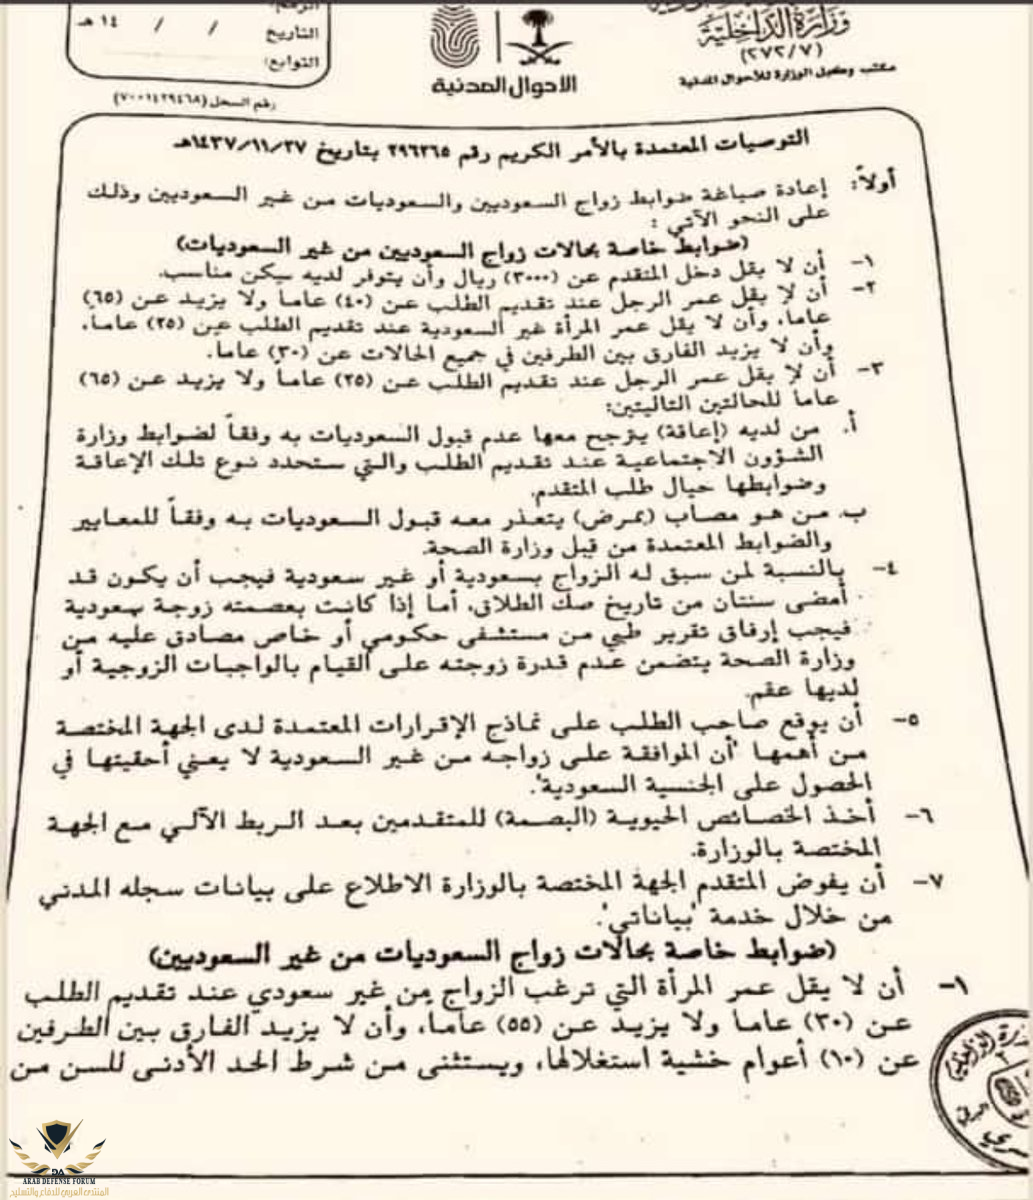 وزارة الداخلية
(٢٧٢/٧)
مكتب وكيل الوزارة للأحوال المدنية
الأحوال المدنية
الرقم:
التاريخ / / ١٤ هـ
التوابع:
رقم السجل (٧٠٠١٤٢٩٤٦٨)
التوصيات المعتمدة بالأمر الكريم رقم ٢٩٦٢٦٥ بتاريخ ١٤٣٧/١١/٢٧هـ
أولاً: إعادة صياغة ضوابط زواج السعوديين والسعوديات من غير السعوديين وذلك
على النحو الآتي :
(ضوابط خاصة بحالات زواج السعوديين من غير السعوديات)
١- أن لا يقل دخل المتقدم عن (٣٠٠٠) ريال وأن يتوفر لديه سكن مناسب.
٢- أن لا يقل عمر الرجل عند تقديم الطلب عن (٤٠) عاماً ولا يزيد عن (٦٥)
عاما، وأن لا يقل عمر المرأة غير السعودية عند تقديم الطلب عن (٢٥) عاما،
وأن لا يزيد الفارق بين الطرفين في جميع الحالات عن (٣٠) عاما.
٣- أن لا يقل عمر الرجل عند تقديم الطلب عن (٢٥) عاماً ولا يزيد عن (٦٥)
عاماً للحالتين التاليتين:
أ. من لديه (إعاقة) يترجح معها عدم قبول السعوديات به وفقاً لضوابط وزارة
الشؤون الاجتماعية عند تقديم الطلب والتي ستحدد نوع تلك الإعاقة
وضوابطها حيال طلب المتقدم.
ب. من هو مصاب (بمرض) يتعذر معه قبول السعوديات به وفقاً للمعايير
والضوابط المعتمدة من قبل وزارة الصحة.
٤- بالنسبة لمن سبق له الزواج بسعودية أو غير سعودية فيجب أن يكون قد
أمضى سنتان من تاريخ صك الطلاق، أما إذا كانت بعصمته زوجة سعودية
فيجب إرفاق تقرير طبي من مستشفى حكومي أو خاص مصادق عليه من
وزارة الصحة يتضمن عدم قدرة زوجته على القيام بالواجبات الزوجية أو
لديها عقم.
٥- أن يوقع صاحب الطلب على نماذج الإقرارات المعتمدة لدى الجهة المختصة
من أهمها "أن الموافقة على زواجه من غير السعودية لا يعني أحقيتها في
الحصول على الجنسية السعودية".
٦- أخذ الخصائص الحيوية (البصمة) للمتقدمين بعد الربط الآلي مع الجهة
المختصة بالوزارة.
٧- أن يفوض المتقدم الجهة المختصة بالوزارة الاطلاع على بيانات سجله المدني
من خلال خدمة "بياناتي".
(ضوابط خاصة بحالات زواج السعوديات من غير السعوديين)
١- أن لا يقل عمر المرأة التي ترغب الزواج من غير سعودي عند تقديم الطلب
عن (٣٠) عاما ولا يزيد عن (٥٥) عاما، وأن لا يزيد الفارق بين الطرفين
عن (١٠) أعوام خشية استغلالها، ويستثنى من شرط الحد الأدنى للسن من
DA
ARAB DEFENSE FORUM
المنتدى العربي للدفاع والتسليح